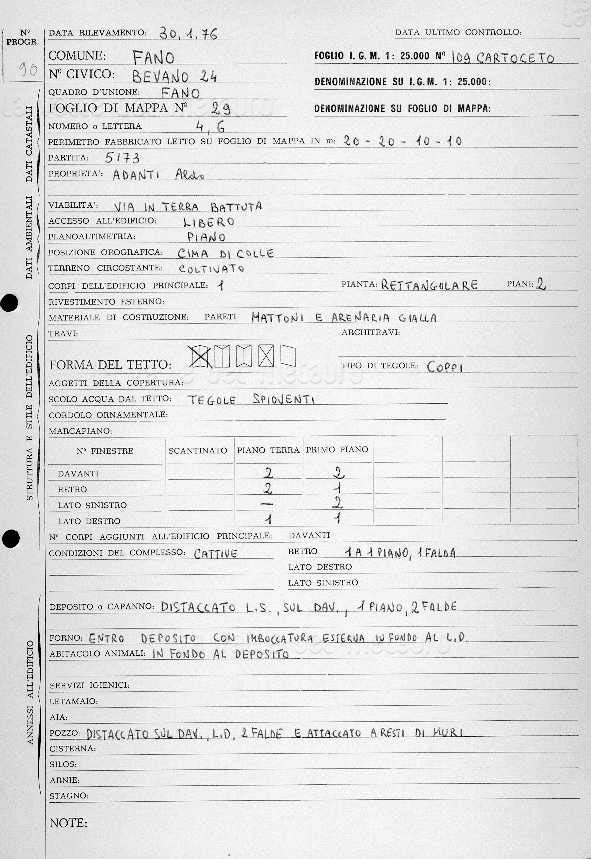 Nº PROGR. 90
DATA RILEVAMENTO: 30,1,76 DATA ULTIMO CONTROLLO:
COMUNE: FANO FOGLIO I.G.M. 1: 25.000 Nº 109 CARTOCETO
Nº CIVICO: BEVANO 24 DENOMINAZIONE SU I.G.M. 1: 25.000:
QUADRO D'UNIONE: FANO
FOGLIO DI MAPPA Nº 29 DENOMINAZIONE SU FOGLIO DI MAPPA:
NUMERO o LETTERA 4, 6
PERIMETRO FABBRICATO LETTO SU FOGLIO DI MAPPA IN m: 20 - 20 - 10 - 10
PARTITA: 5173
PROPRIETA': ADANTI Aldo
DATI CATASTALI
VIABILITA': VIA IN TERRA BATTUTA
ACCESSO ALL'EDIFICIO: LIBERO
PLANOALTIMETRIA: PIANO
POSIZIONE OROGRAFICA: CIMA DI COLLE
TERRENO CIRCOSTANTE: COLTIVATO
DATI AMBIENTALI
CORPI DELL'EDIFICIO PRINCIPALE: 1 PIANTA: RETTANGOLARE PIANI: 2
RIVESTIMENTO ESTERNO:
MATERIALE DI COSTRUZIONE: PARETI MATTONI E ARENARIA GIALLA
TRAVI: ARCHITRAVI:
FORMA DEL TETTO: TIPO DI TEGOLE: COPPI
AGGETTI DELLA COPERTURA:
SCOLO ACQUA DAL TETTO: TEGOLE SPIOVENTI
CORDOLO ORNAMENTALE:
MARCAPIANO:
Nº FINESTRE SCANTINATO PIANO TERRA PRIMO PIANO
DAVANTI 2 2
RETRO 2 1
LATO SINISTRO — 2
LATO DESTRO 1 1
STRUTTURA E STILE DELL'EDIFICIO
Nº CORPI AGGIUNTI ALL'EDIFICIO PRINCIPALE: DAVANTI
CONDIZIONI DEL COMPLESSO: CATTIVE RETRO 1 A 1 PIANO, 1 FALDA
LATO DESTRO
LATO SINISTRO
DEPOSITO o CAPANNO: DISTACCATO L.S., SUL DAV., 1 PIANO, 2 FALDE
FORNO: ENTRO DEPOSITO CON IMBOCCATURA ESTERNA IN FONDO AL L.D.
ABITACOLO ANIMALI: IN FONDO AL DEPOSITO
SERVIZI IGIENICI:
LETAMAIO:
AIA:
POZZO: DISTACCATO SUL DAV., L.D, 2 FALDE E ATTACCATO A RESTI DI MURI
CISTERNA:
SILOS:
ARNIE:
STAGNO:
ANNESSI ALL'EDIFICIO
NOTE: